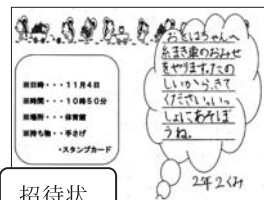 ※日時・・・11月4日
※時間・・・10時50分
※場所・・・体育館
※持ち物・・・手さげ
・スタンプカード
おとはちゃんへ
糸まき車のおみせ
をやります。たの
しいから、きて
ください。いっ
しょにあそぼ
うね。
2年2くみ
招待状